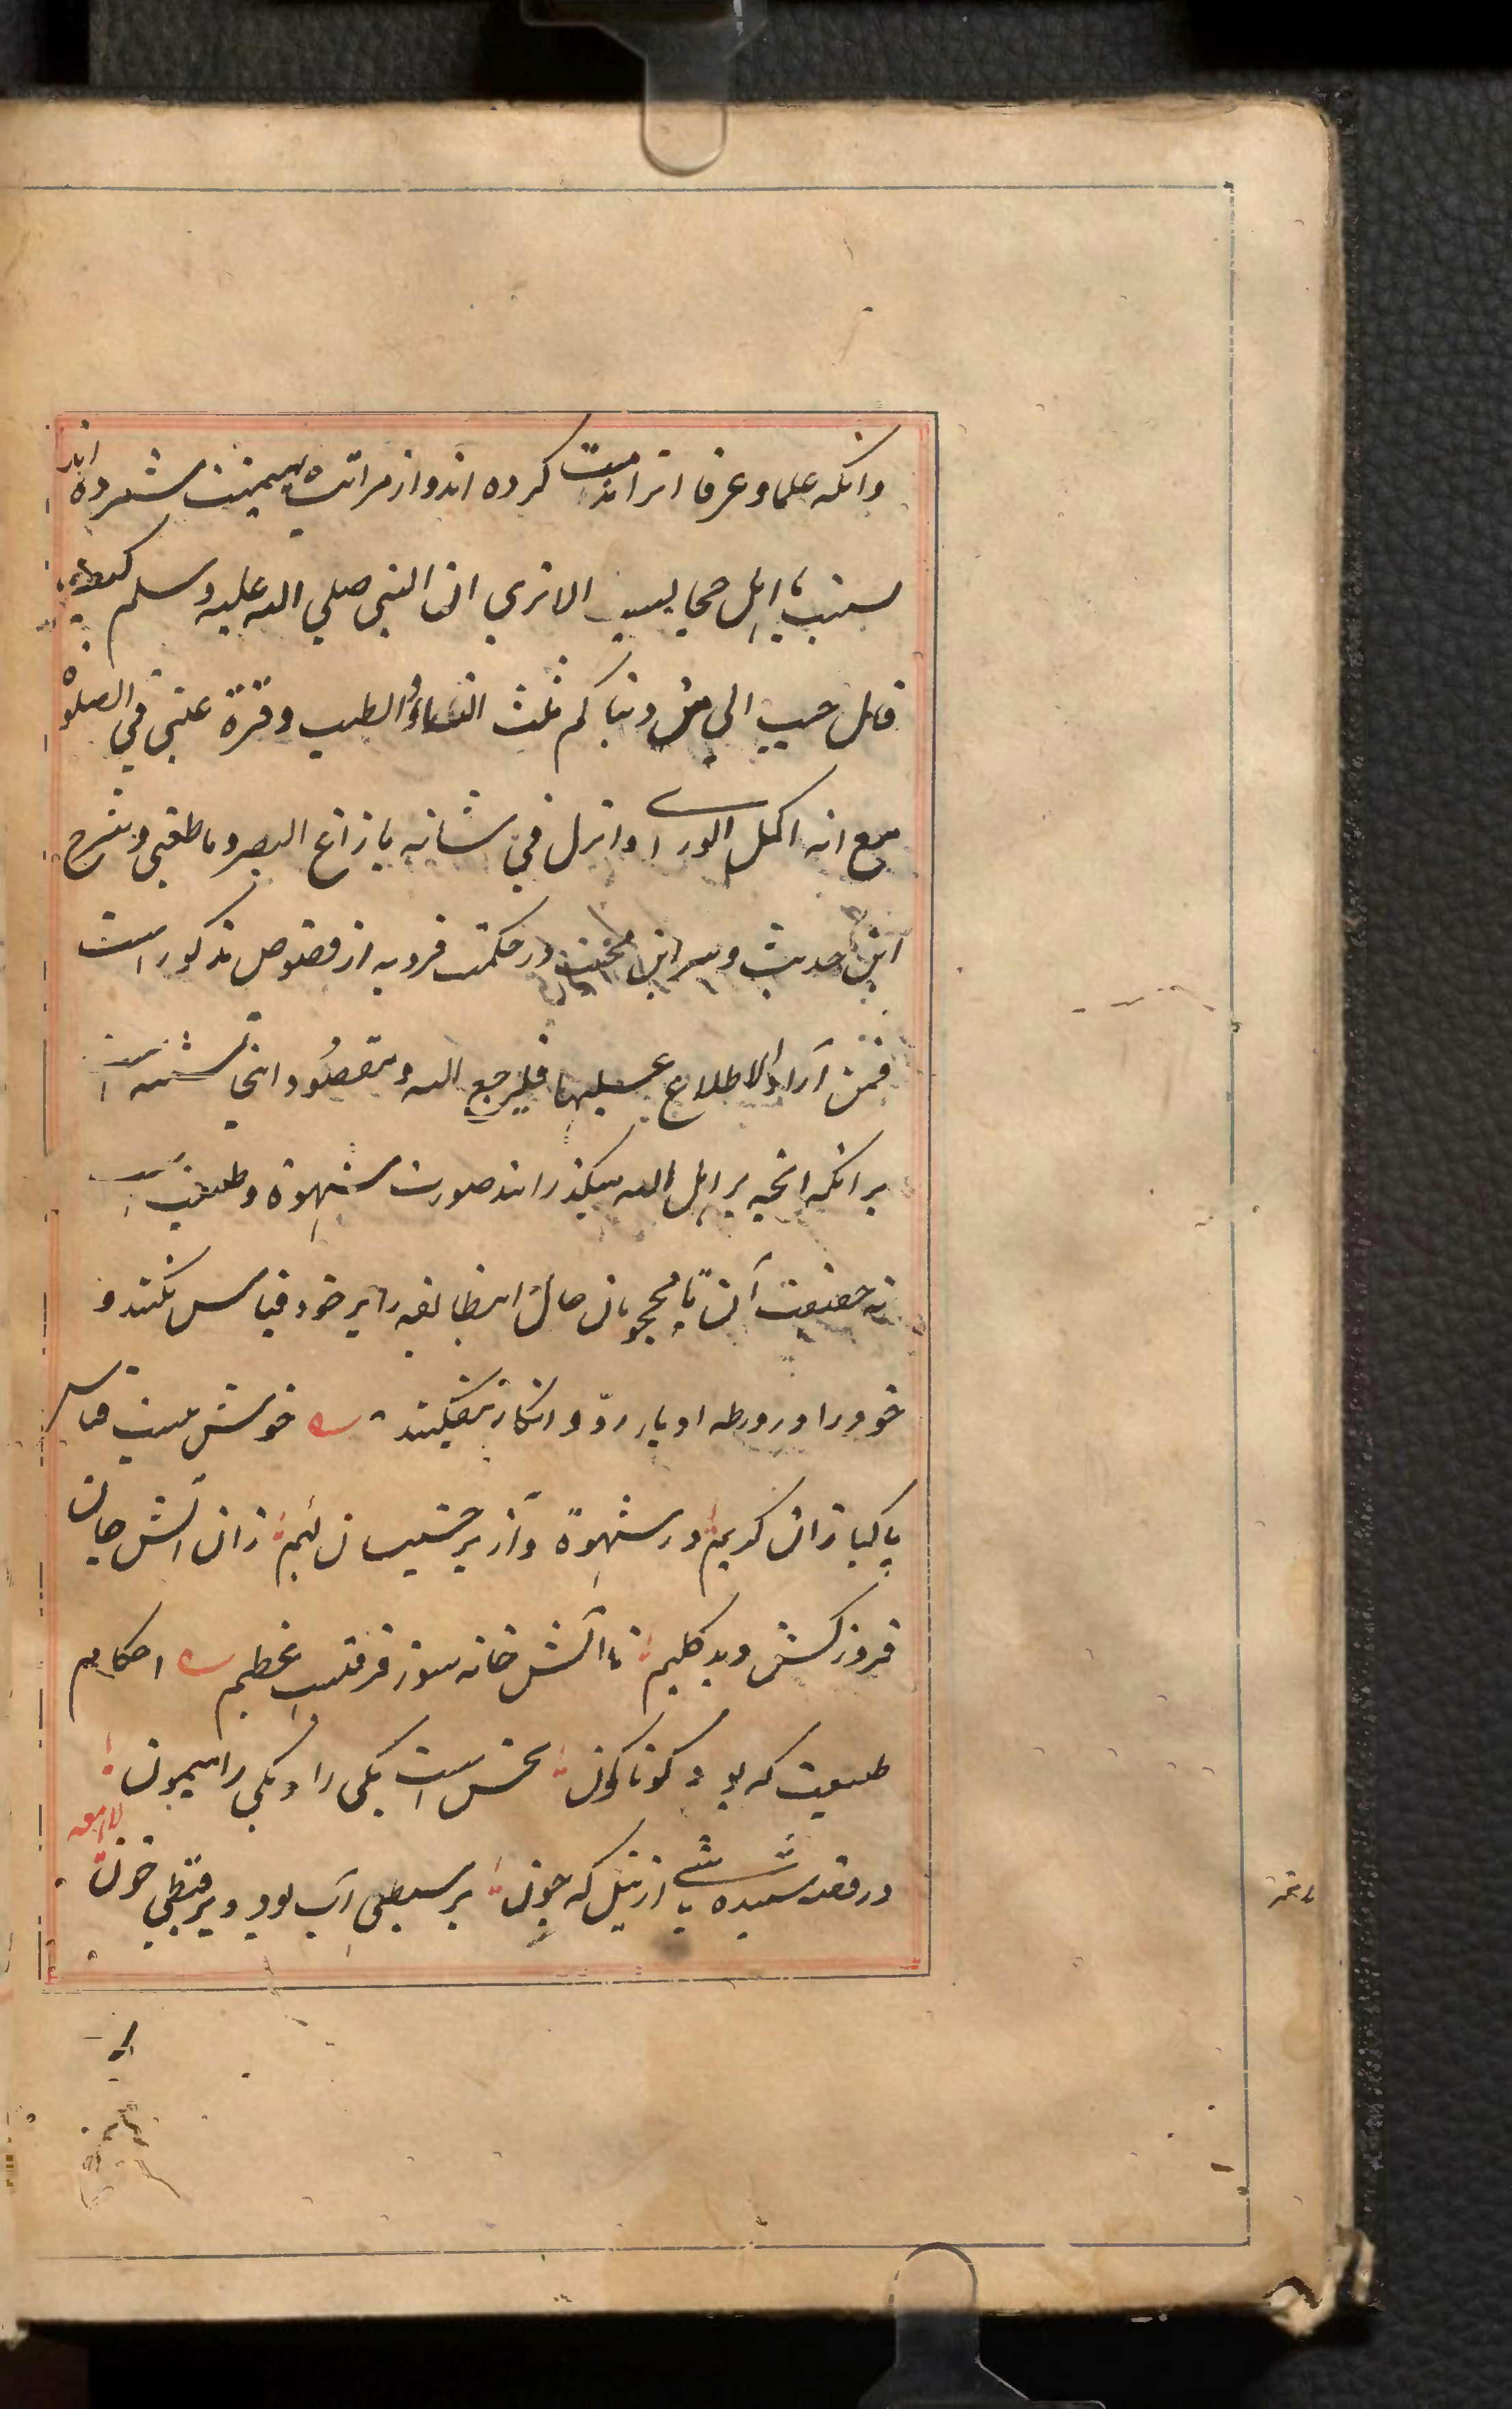 وانکه علما و عرفا انرا مذمت کرده اند و از مراتب بهیمیت شمرده اند
نسبت با اهل حجابست الا تری ان النبی صلی الله علیه وسلم کیف
قال حبب الی من دنیاکم ثلث النساء و الطیب و قرة عینی فی الصلوة
مع انه اکمل الوری و انزل فی شانه ما زاغ البصر و ما طغی و شرح
این حدیث و سر این محبت در حکمت فردیه از فصوص مذکور است
فمن آراد الاطلاع علیها فلیرجع الیه و مقصود اینجا تنبیه است
برانکه انچه بر اهل الله میگذراند صورت شهوة و طبیعت است
نه حقیقت آن تا محجوبان حال اینطایفه را بر خود قیاس نکنند و
خود را در ورطه ادبار رد و انکار نیفکنند خوش نیست قیاس
پاکبازان کریم در شهوة و آز بر خسیسان لئیم زان آتش جان
فروز کش دید کلیم تا آتش خانه سوز فرقیست عظیم احکام
طبیعت که بود گوناگون نحس است یکی را و یکی را میمون
در قصه شنیده باشی از نیل که چون بر سبطی آب بود و بر قبطی خون